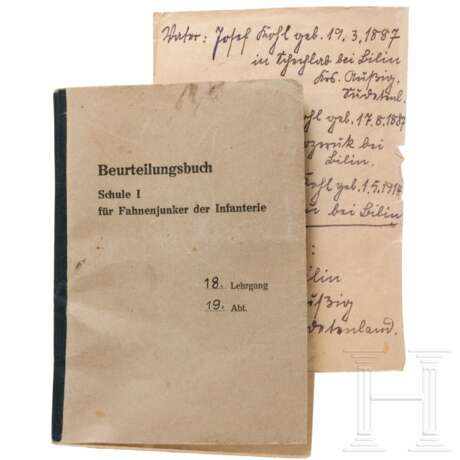 Vater: Josef Kohl geb. 19.3.1887
in Schechlab bei Bilin
Krs. Außig.
Sudetenl.
Kohl geb. 17.8.1887
bei
Bilin.
Kohl geb. 1.5.1914
bei Bilin
Bilin
Außig
Sudetenland.
Beurteilungsbuch
Schule I
für Fahnenjunker der Infanterie
18. Lehrgang
19. Abt.